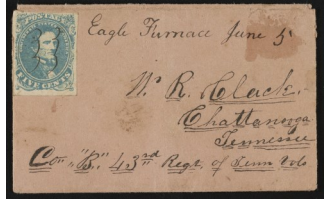 POSTAGE
FIVE CENTS
Eagle Furnace June 5
W. R. Clack.
Chattanooga
Tennessee
Co. "B" 43rd Regt. of Tenn Vols